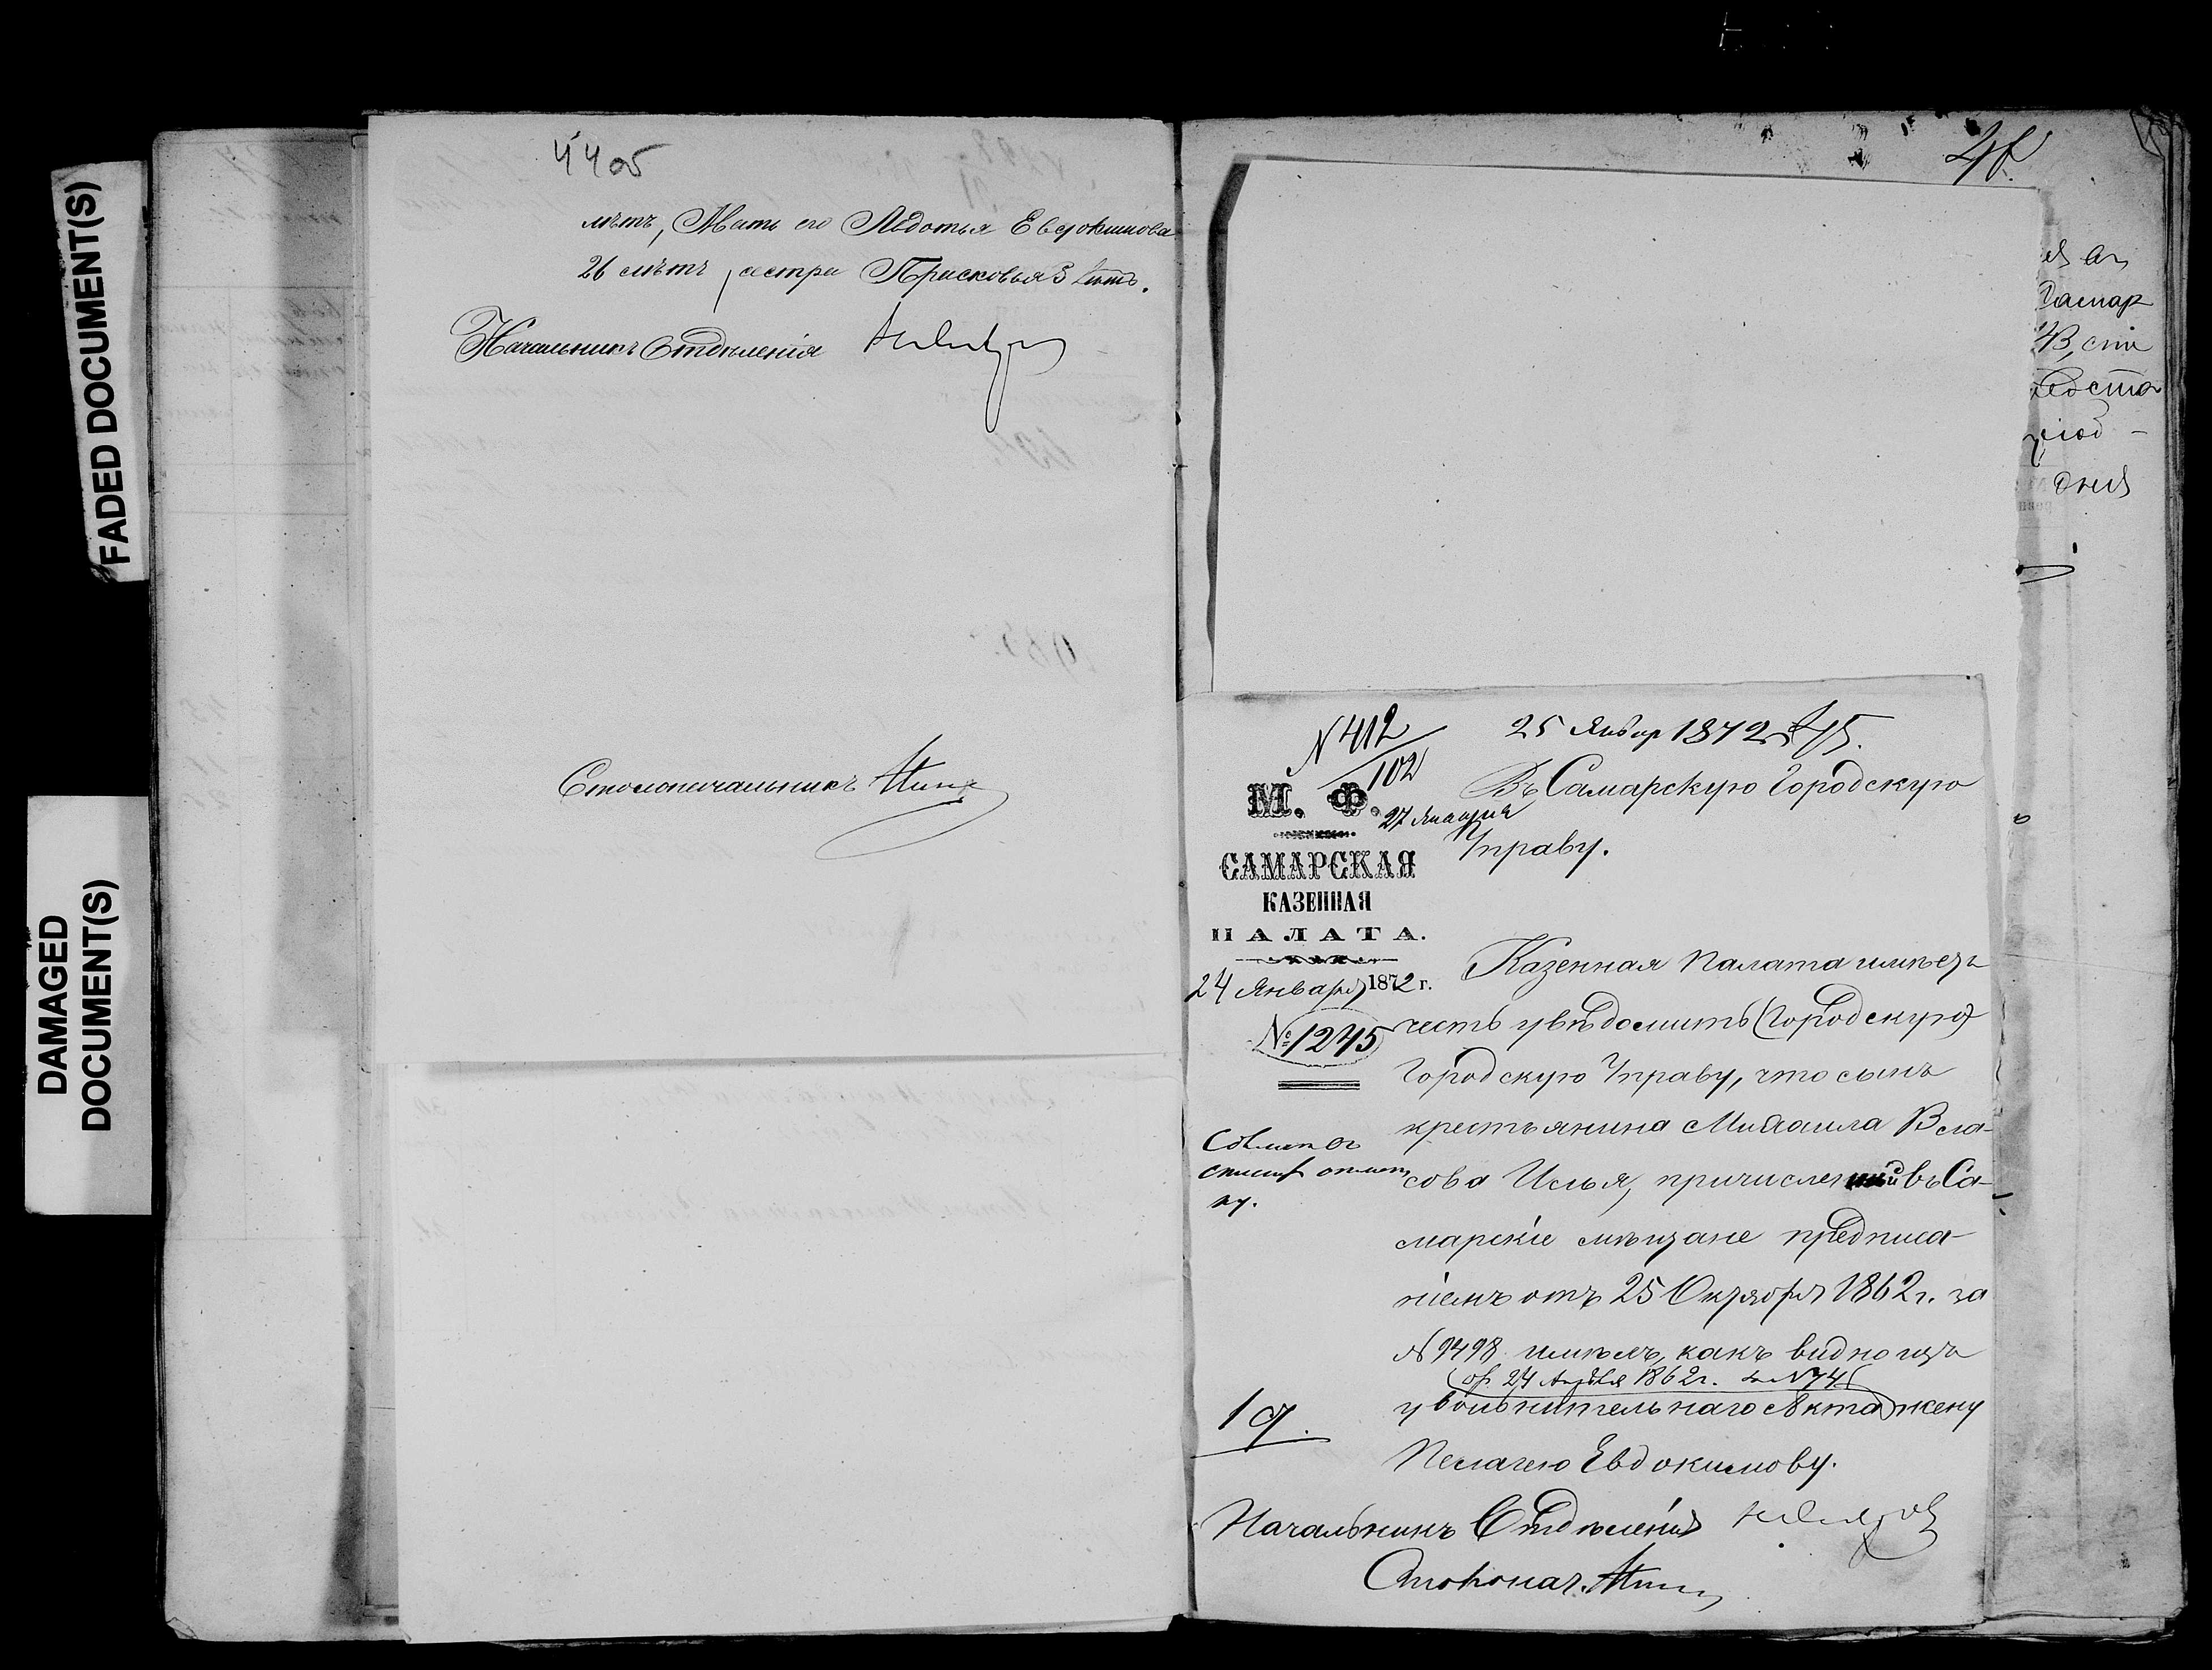 FADED DOCUMENT(S)
DAMAGED
DOCUMENT(S)
44 об
лѣтъ, Мать его Авдотья Евдокимова
26 лѣтъ, сестра Прасковья 3 лѣтъ.
Начальникъ Отдѣленія
Столоначальникъ
Самар
дня
N 412
102
27 Января
25 Январ 1872
45.
М. Ф.
САМАРСКАЯ
КАЗЕННАЯ
ПАЛАТА.
24 Января 1872 г.
№ 1245
Въ Самарскую Городскую
Управу.
Казенная Палата имѣетъ
честь увѣдомить (Городскую)
Городскую Управу, что сынъ
крестьянина Михаила Вла-
сова Илья, причисленный въ Са-
марскіе мѣщане предписа-
ніемъ отъ 25 Октября 1862 г. за
N 9498 имѣлъ, какъ видно изъ
(от 24 Апрѣля 1862 г. за N 74)
увольнительнаго Акта жену
Пелагею Евдокимову.
19.
Начальникъ Отдѣленія
Столонач.